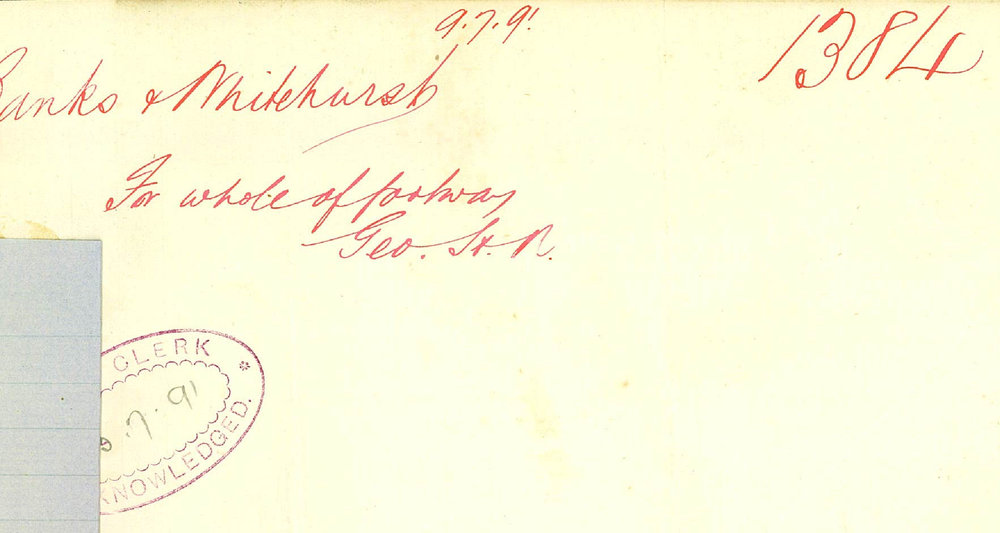 9.7.91
1384
Banks & Whitehurst
For whole of footway
Geo. St. N.
CLERK
9.7.91
KNOWLEDGED.